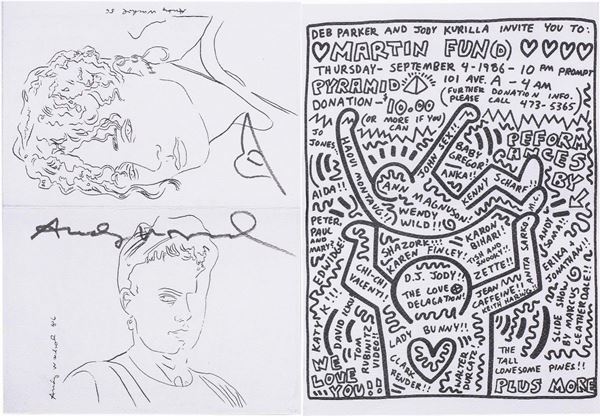 Andy Warhol 86
Andy Warhol
Andy Warhol 86
DEB PARKER AND JODY KURILLA INVITE YOU TO:
MARTIN FUN(D)
THURSDAY - SEPTEMBER 4 - 1986 - 10 PM PROMPT
PYRAMID
101 AVE. A - 4 AM
DONATION - $10.00
(FURTHER DONATION INFO.
PLEASE CALL 473-5365
(OR MORE IF YOU CAN
PEFORMANCES BY
JO JONES
HAOUI MONTAUG!!
JOHN SEX!!
BABY GREGOR
INKA!!
KENNY SCHARF
AIDA!!
ANN MAGNUSON
WENDY WILD!!
PETER, PAUL AND MARY!
EDWIDGE!
SHAZORK!!!
KAREN FINLEY!
KARON BIHARI!
TISH AND SNOOKY!
ZETTE!!
ANITA SARKO
M.C.
ANDY SOMA!
ERIKA + JONATHAN!!
CHI-CHI VALENTI!
D.J. JODY!!
THE LOVE DELAGATION!
JEAN CAFFEINE!!
KEITH HARING!!
SLIDE SHOW BY MARCUS LEATHERDALE!!
KATY K!!!
DAVID
TOM RUBINITZ VIDEO!!
LADY BUNNY!!
CLARK RENDER!!
WALTER DURCATZ
THE TALL LONESOME PINES!!
WE LOVE YOU!!
PLUS MORE